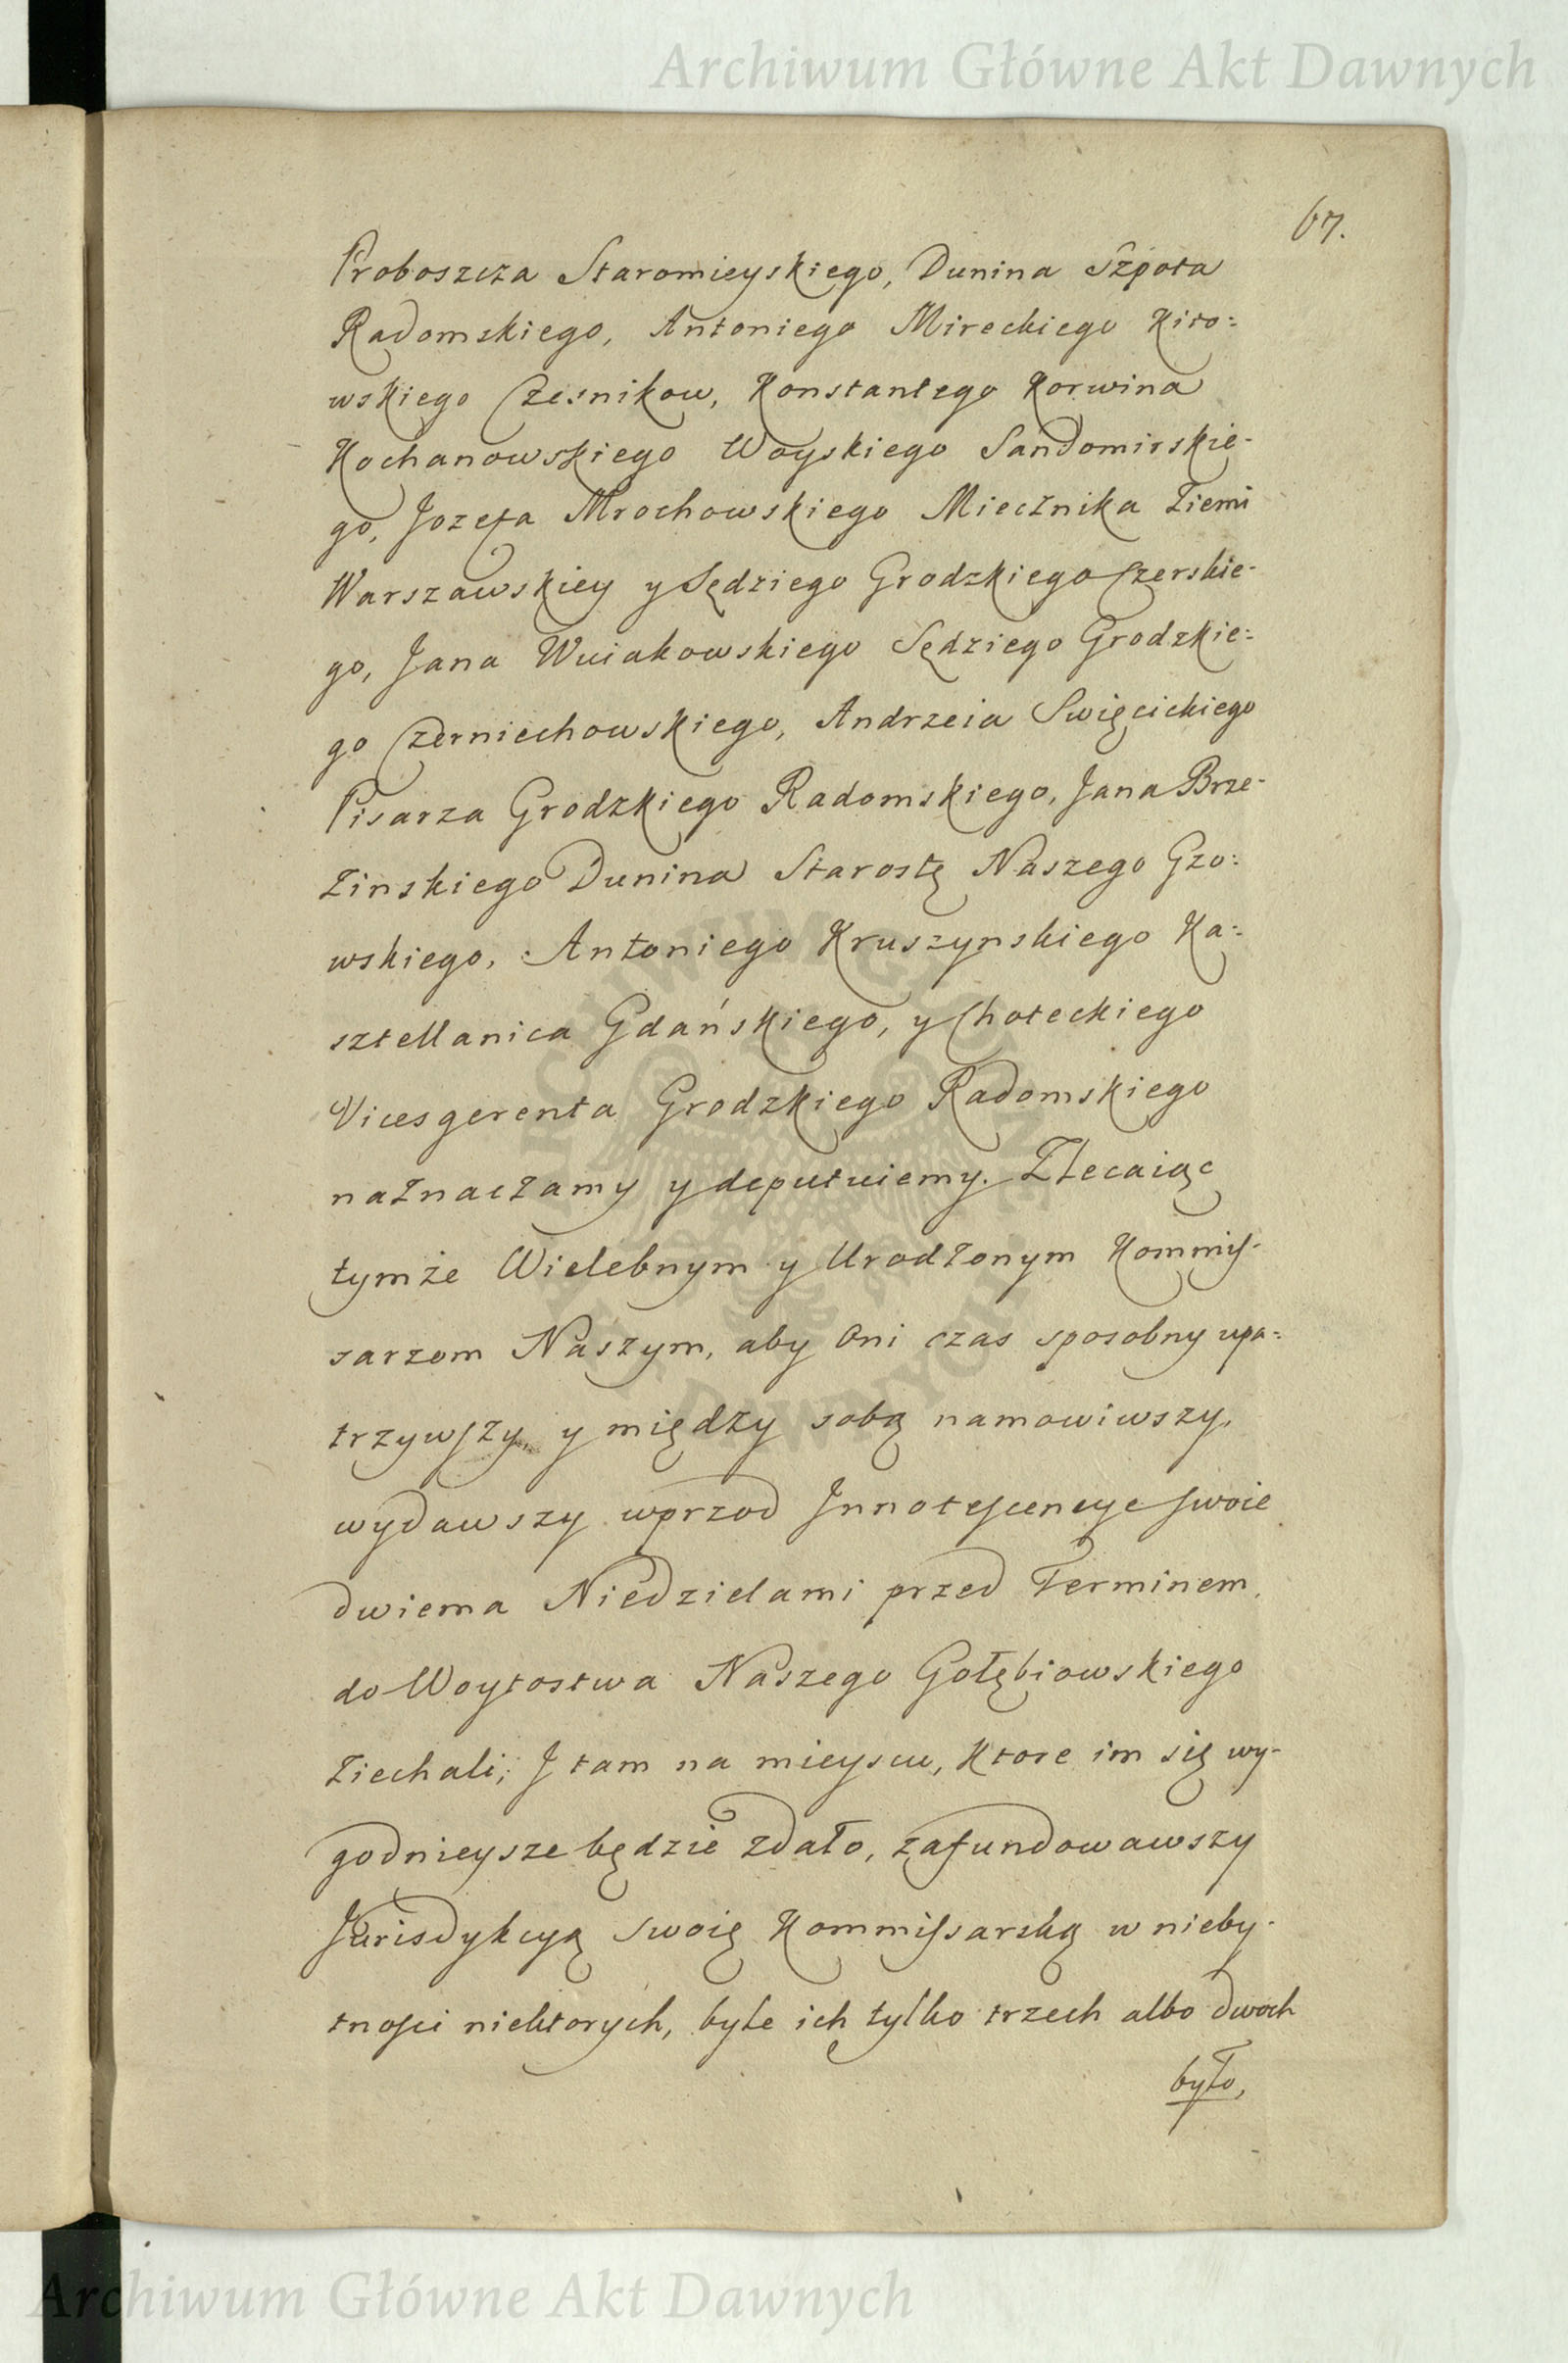 Archiwum Główne Akt Dawnych
67.
Proboszcza Staromieyskiego, Dunina Szpota
Radomskiego, Antoniego Mireckiego Kiio:
wskiego Czesnikow, Konstantego Korwina
Kochanowskiego Woyskiego Sandomirskie-
go, Jozefa Mrochowskiego Miecznika Ziemi
Warszawskiey y Sędziego Grodzkiego Czerskie-
go, Jana Wuiakowskiego Sędziego Grodzkie:
go Czerniechowskiego, Andrzeia Swięcickiego
Pisarza Grodzkiego Radomskiego, Jana Brze-
zinskiego Dunina Starostę Naszego Gzo:
wskiego, Antoniego Kruszynskiego Ka:
sztellanica Gdańskiego, y Choteckiego
Vicesgerenta Grodzkiego Radomskiego
naznaczamy y deputuiemy. Zlecaiąc
tymże Wielebnym y Urodzonym Kommis-
sarzom Naszym, aby Oni czas sposobny upa:
trzywszy, y między sobą namowiwszy,
wydawszy wprzod Innotescencye swoie
dwiema Niedzielami przed Terminem,
do Woytostwa Naszego Gołębiowskiego
Ziechali; J tam na mieyscu, Ktore im się wy-
godnieysze będzie zdało, zafundowawszy
Jurisdykcyą swoię Kommissarską w nieby-
tności niektorych, byle ich tylko trzech albo dwoch
było,
Archiwum Główne Akt Dawnych